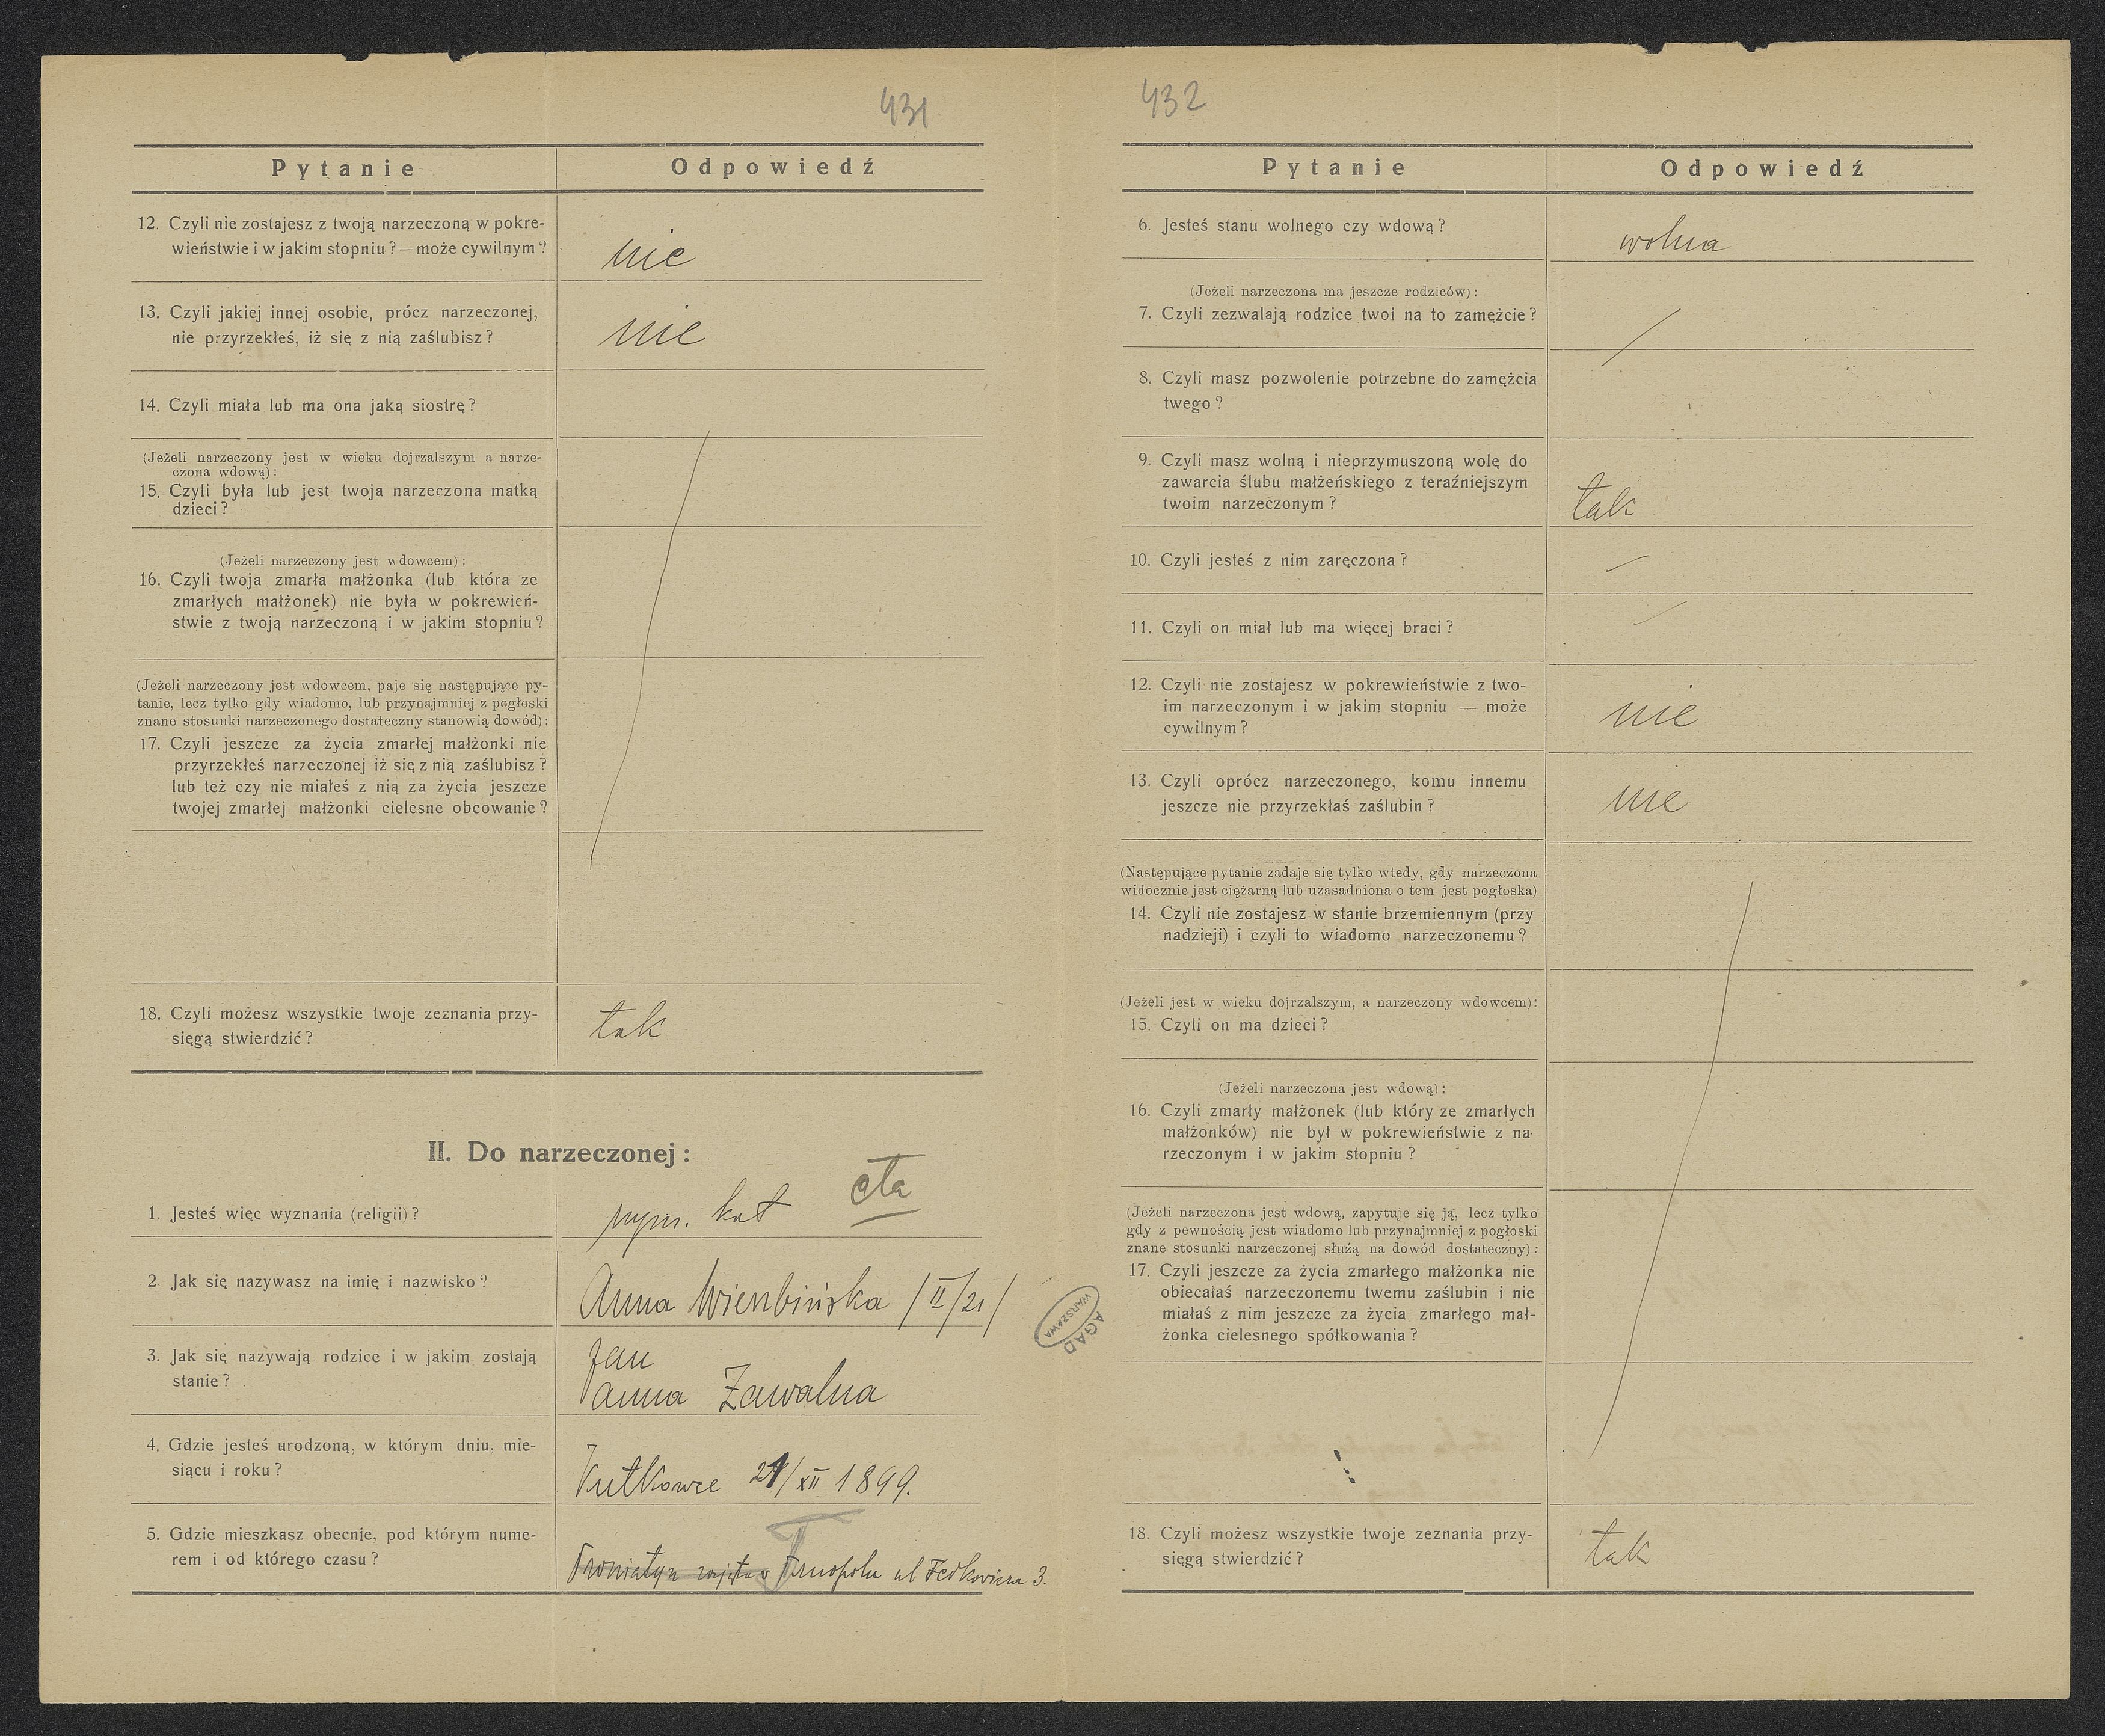 431
Pytanie
Odpowiedź
12. Czyli nie zostajesz z twoją narzeczoną w pokre-
wieństwie i w jakim stopniu?—może cywilnym?
nie
13. Czyli jakiej innej osobie, prócz narzeczonej,
nie przyrzekłeś, iż się z nią zaślubisz?
nie
14. Czyli miała lub ma ona jaką siostrę?
(Jeżeli narzeczony jest w wieku dojrzalszym a narze-
czona wdową):
15. Czyli była lub jest twoja narzeczona matką
dzieci?
(Jeżeli narzeczony jest wdowcem):
16. Czyli twoja zmarła małżonka (lub która ze
zmarłych małżonek) nie była w pokrewień-
stwie z twoją narzeczoną i w jakim stopniu?
(Jeżeli narzeczony jest wdowcem, paje się następujące py-
tanie, lecz tylko gdy wiadomo, lub przynajmniej z pogłoski
znane stosunki narzeczonego dostateczny stanowią dowód):
17. Czyli jeszcze za życia zmarłej małżonki nie
przyrzekłeś narzeczonej iż się z nią zaślubisz?
lub też czy nie miałeś z nią za życia jeszcze
twojej zmarłej małżonki cielesne obcowanie?
18. Czyli możesz wszystkie twoje zeznania przy-
sięgą stwierdzić?
tak
II. Do narzeczonej:
1. Jesteś więc wyznania (religii)?
rzym. kat
cta
2. Jak się nazywasz na imię i nazwisko?
Anna Wierzbińska /II/21/
3. Jak się nazywają rodzice i w jakim zostają
stanie?
Jan
Anna Zawalna
4. Gdzie jesteś urodzoną, w którym dniu, mie-
siącu i roku?
Kutkowce 21/XII 1899.
5. Gdzie mieszkasz obecnie, pod którym nume-
rem i od którego czasu?
Proniatyn Tarnopolu ul Fedkowicza 3.
AGAD
WARSZAWA
432
Pytanie
Odpowiedź
6. Jesteś stanu wolnego czy wdową?
wolna
(Jeżeli narzeczona ma jeszcze rodziców):
7. Czyli zezwalają rodzice twoi na to zamężcie?
8. Czyli masz pozwolenie potrzebne do zamężcia
twego?
9. Czyli masz wolną i nieprzymuszoną wolę do
zawarcia ślubu małżeńskiego z teraźniejszym
twoim narzeczonym?
tak
10. Czyli jesteś z nim zaręczona?
11. Czyli on miał lub ma więcej braci?
12. Czyli nie zostajesz w pokrewieństwie z two-
im narzeczonym i w jakim stopniu — może
cywilnym?
nie
13. Czyli oprócz narzeczonego, komu innemu
jeszcze nie przyrzekłaś zaślubin?
nie
(Następujące pytanie zadaje się tylko wtedy, gdy narzeczona
widocznie jest ciężarną lub uzasadniona o tem jest pogłoska)
14. Czyli nie zostajesz w stanie brzemiennym (przy
nadzieji) i czyli to wiadomo narzeczonemu?
(Jeżeli jest w wieku dojrzalszym, a narzeczony wdowcem):
15. Czyli on ma dzieci?
(Jeżeli narzeczona jest wdową):
16. Czyli zmarły małżonek (lub który ze zmarłych
małżonków) nie był w pokrewieństwie z na-
rzeczonym i w jakim stopniu?
(Jeżeli narzeczona jest wdową, zapytuje się ją, lecz tylko
gdy z pewnością jest wiadomo lub przynajmniej z pogłoski
znane stosunki narzeczonej służą na dowód dostateczny):
17. Czyli jeszcze za życia zmarłego małżonka nie
obiecałaś narzeczonemu twemu zaślubin i nie
miałaś z nim jeszcze za życia zmarłego mał-
żonka cielesnego spółkowania?
18. Czyli możesz wszystkie twoje zeznania przy-
sięgą stwierdzić?
tak